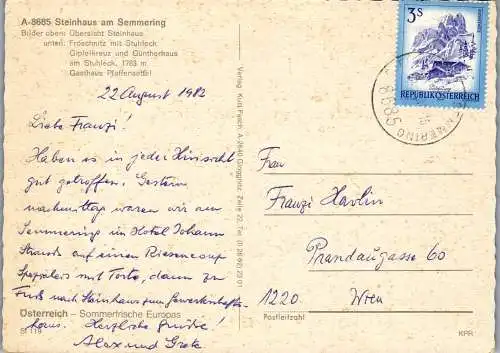 A-8685 Steinhaus am Semmering
Bilder oben: Übersicht Steinhaus
unten: Fröschnitz mit Stuhleck
Gipfelkreuz und Güntherhaus
am Stuhleck, 1783 m
Gasthaus Pfaffensattel
22 August 1982
Liebe Franzi!
Haben es in jeder Hinsicht
gut getroffen. Gestern
nachmittag waren wir am
Semmering im Hotel Johann
Strauß auf einen Riesencoup
Spezialeis mit Torte, dann zu
Fuß nach Steinhaus zum Gewerkschafts-
haus. Herzliche Grüße!
Alex und Grete
Österreich – Sommerfrische Europas
St 119
Verlag Kurt Pesch, A-2640 Gloggnitz, Zeile 22, Tel.
3 S
REPUBLIK ÖSTERREICH
8685
Frau
Franzi Havlin
Prandaugasse 60
1220 Wien
Postleitzahl
KPR